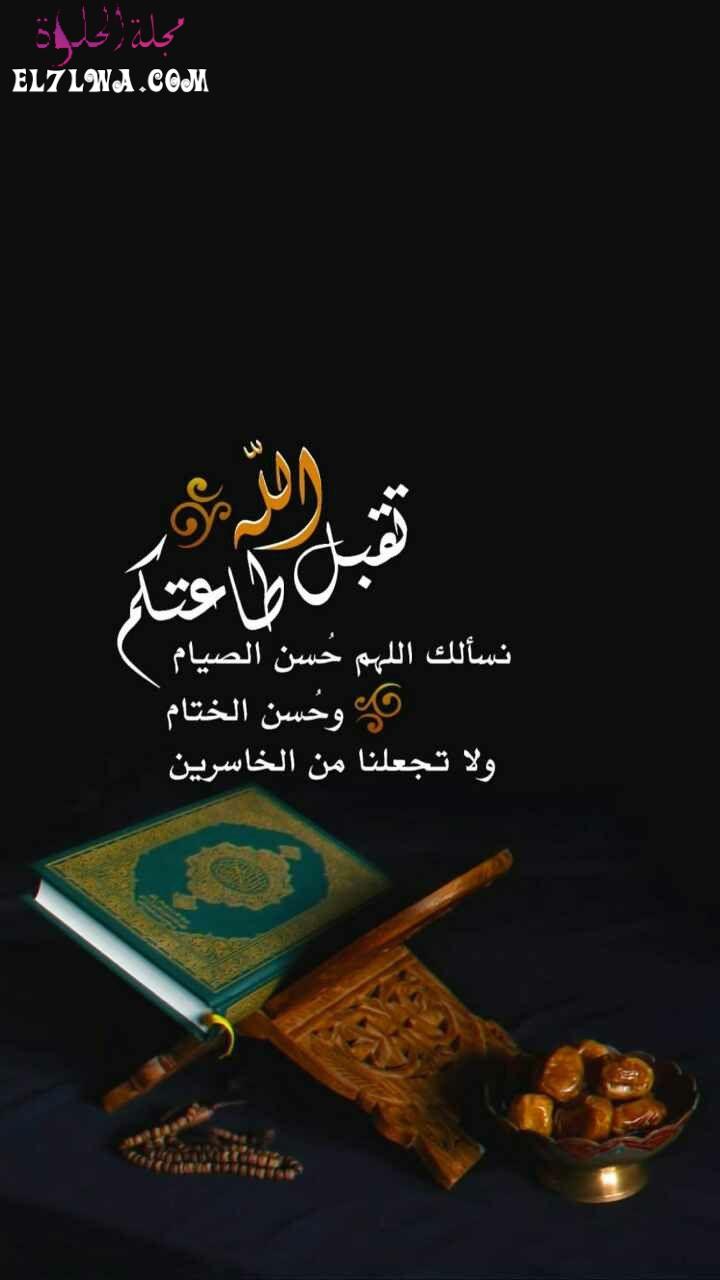 مجلة الحلوة
EL7LWA.COM
تقبل الله
طاعتكم
نسألك اللهم حُسن الصيام
وحُسن الختام
ولا تجعلنا من الخاسرين